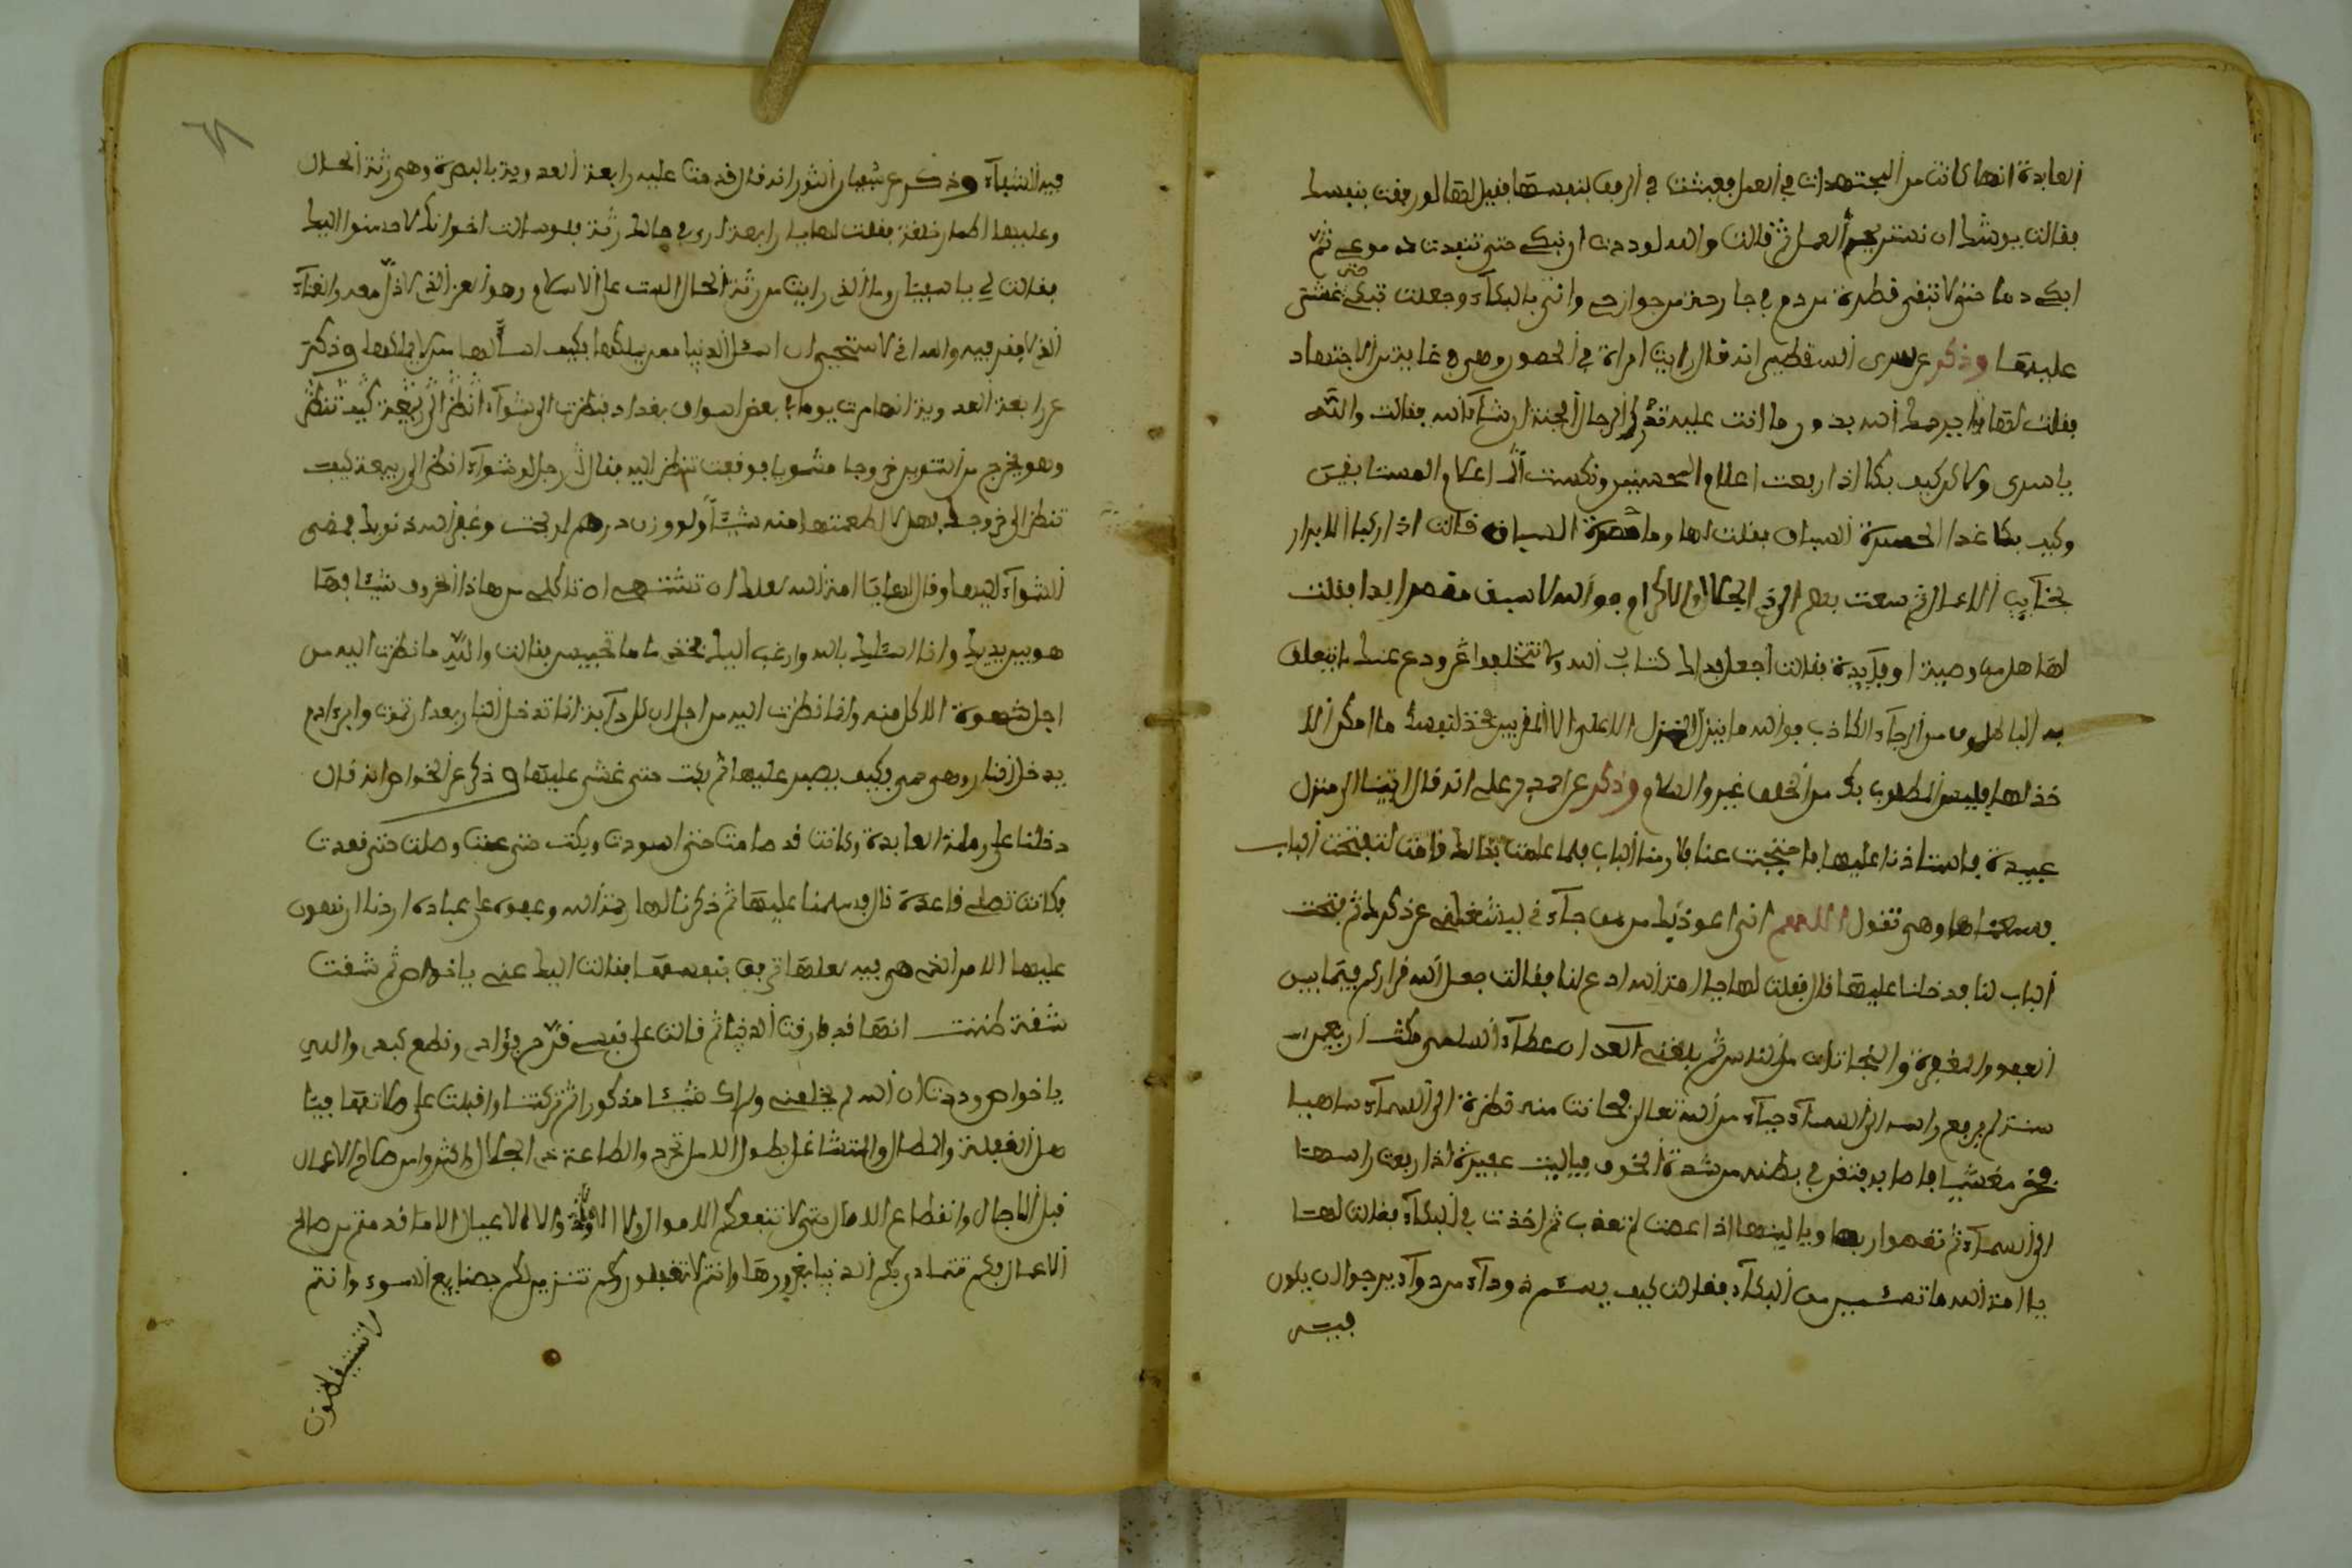 العابدة انها كانت من المجتهدات في العمل فعيشت في الرفق بنفسها فقيل لها لو رفقت بنفسك
فقالت يوشك ان نستريح العمل ثم قالت والله لوددت ان نبكي حتى تنفد دموعي ثم
ابكي دما حتى لا تبقى قطرة من دم في جارحة من جوارحي واني بالبكاء وجعلت تبكي حتى غشي
عليها وذكر عن سري السقطي انه قال رايت امراة في وهي في غاية من الاجتهاد
فقلت لها الله والله
يا سري ولاكن كيف بك اذا ربعت اعلام المحسنين ونكست اعلام
وكيف بك غدا السباق فقلت لها وما السباق قالت اذا ركب الابرار
نجايب الاعمال ثم سعت بهم الى ذي الجلال والاكرام فوالله لا يسبق مقصر ابدا فقلت
لها هل من وصية او فايدة فقالت اجعل كتاب الله ودع عنك ما يتعلق
به الباطلون من الرجاء الكاذب فوالله ما ينزل المنزل الاعلى الا المقربين فخذ لنفسك ما امكن الا
خذ لها فليس المطلوب بك من الخلف غير والسلام وذكر عن احمد بن علي انه قال اتينا الى منزل
عبيدة فاستاذنا عليها فاحتجبت عنا فلازمنا الباب فلما علمت ذالك قامت لتفتحت الباب
فسمعناها وهي تقول اللهم اني اعوذ بك من من جاء في ليشغلني عن ذكرك ثم فتحت
الباب لنا فدخلنا عليها قال فقلت لها يا امة الله ادع لنا فقالت جعل الله قراركم فيما بين
العفو والمغفرة والنجاة من النار ثم بلغني ان عطاء السلمي مكث اربعين
سنة لم يرفع راسه الى السماء حياء من الله تعالى فحانت منه نظرة الى السماء ساهيا
فخر مغشيا فاصابه فتق في بطنه من شدة الخوف فياليت عفيرة اذا رفعت راسها
الى السماء لم تعص ربها وياليتها اذا عصت لم تعذب ثم اخذت في البكاء فقالت لها
يا امة الله ما تسئمين من البكاء فقالت كيف يسئم ذو داء من دواء يرجوا ان يكون
فيه
فيه الشفاء وذكر عن سفيان الثوري انه قال قدمت عليه رابعة العدوية بالبصرة وهي رثة الحال
وعليها اطمار خلقة فقلت لها يا رابعة ارى في حالك رثة فلو سالت اخوانك لاحسنوا اليك
فقالت لي يا سفيان وما الذي رايت من رثة الحال الست على الاسلام وهو العز الذي لا ذل معه والغناء
الذي لا فقر فيه والله اني لاستحيي ان اسئل الدنيا ممن يملكها فكيف اسالها من لا يملكها وذكر
عن رابعة العدوية انها مرت يوما في بعض اسواق بغداد فنظرت الى شواء انظر الى كيف تنظر
وهو يخرج من التنور خروجا مشويا فوقفت تنظر اليه فقال رجل لو شواء انظر الى رابعة كيف
تنظر الى خروجك فهل لا اطعمتها منه شيئا ولو وزن درهم لربحت وغفر الله ذنوبك فمضى
الشواء اليها وقال لها يا امة الله لعلك ان تشتهي ان تاكلي من هاذا الخروف شيئا فها
هو بين يديك وانا اسئلك بالله وارغب اليك فخذي ما تحبين فقالت والله ما نظرت اليه من
اجل شهوة الاكل منه وانما نظرت اليه من اجل ان الدابة انما تدخل النار بعد ان تموت وابن ادم
يدخل النار وهو حي فكيف يصبر عليها ثم بكت حتى غشي عليها وذكر عن الخواص انه قال
دخلنا على رملة العابدة وكانت قد صامت حتى اسودت وبكت حتى عميت وصلت حتى قعدت
فكانت تصلي قاعدة قال فسلمنا عليها ثم ذكرنا لها رحمة الله وعفوه على عباده اردنا ان نهون
عليها الامر الذي هي فيه لعلها ترفق بنفسها فقالت اليك عني يا خواص ثم شهقت
شهقة ظننت انها قد فارقت الدنيا ثم قالت على نفسي قرح فؤادي وقطع كبدي والله
يا خواص وددت ان الله لم يخلقني ولم اك شيئا مذكورا ثم تركتنا واقبلت على صلاتها فيا
اهل الغفلة والمطال والتشاغل بطول الامل والطاعة ذي الجلال واكثروا من صالح الاعمال
قبل الاجال وانقطاع الامال حتى لا تنفعكم الاموال ولا الاولاد ولا العيال الا ما قدمتم من صالح
الاعمال فكم تتمادى بكم الدنيا بغرورها وانتم لا تغفلون وكم تتزين لكم بصنايع السوء وانتم